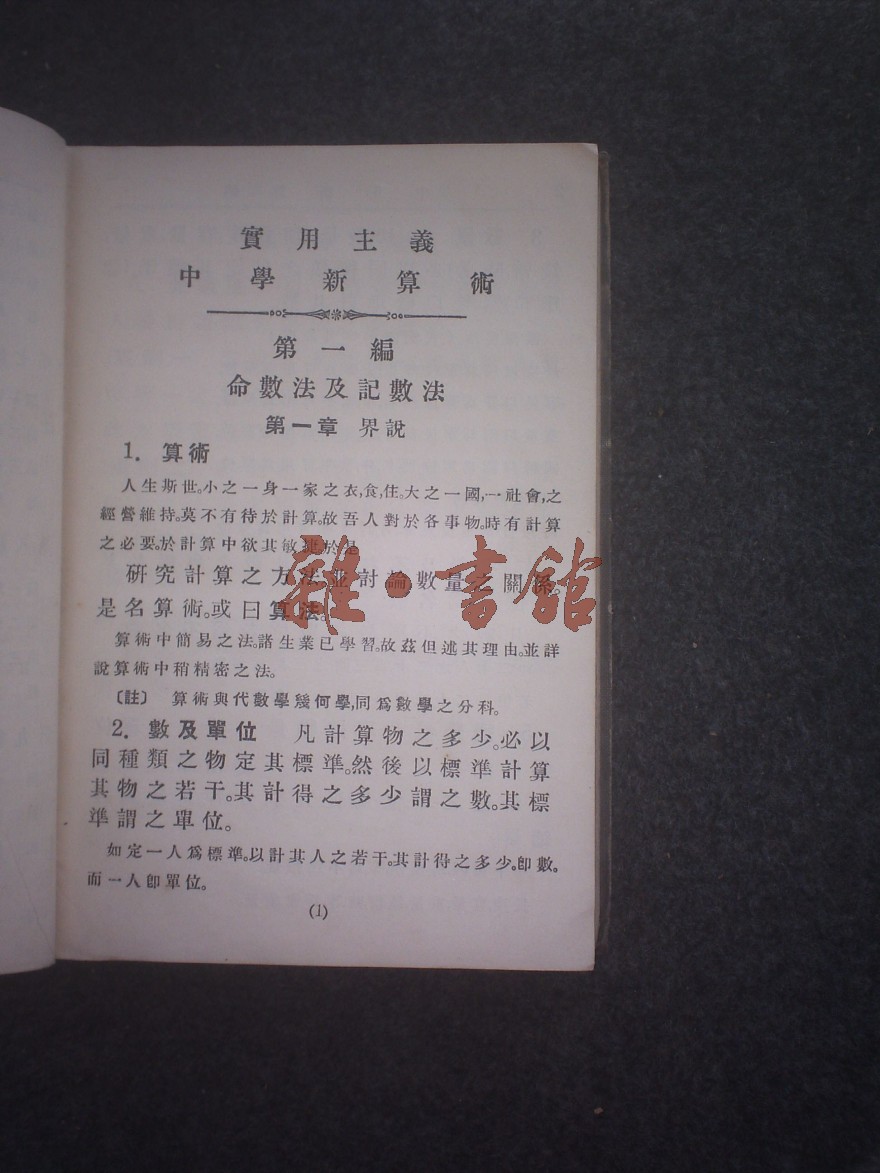 實用主義
中學新算術
第一編
命數法及記數法
第一章 界說
1. 算術
人生斯世。小之一身一家之衣,食,住。大之一國,一社會,之
經營維持。莫不有待於計算。故吾人對於各事物。時有計算
之必要。於計算中欲其敏捷。於是
研究計算之方法並討論數量之關係。
是名算術。或曰算法。
算術中簡易之法。諸生業已學習。故茲但述其理由。並詳
說算術中稍精密之法。
〔註〕 算術與代數學幾何學,同爲數學之分科。
2. 數及單位 凡計算物之多少。必以
同種類之物定其標準。然後以標準計算
其物之若干。其計得之多少謂之數。其標
準謂之單位。
如定一人爲標準。以計其人之若干。其計得之多少。卽數。
而一人卽單位。
(1)
雜·書館